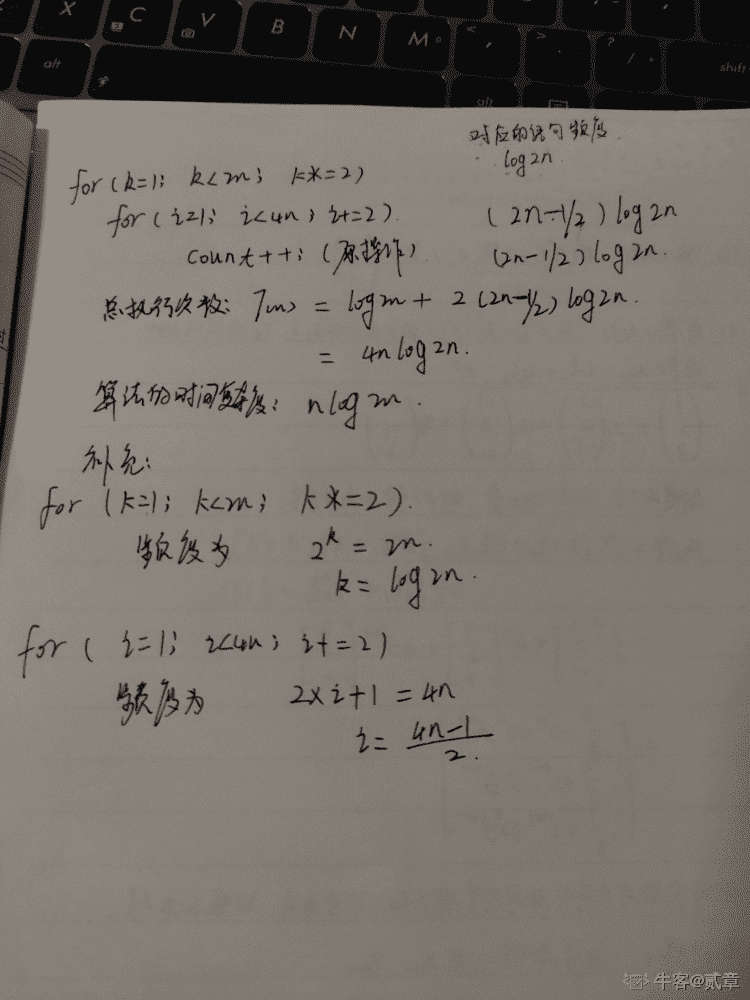 X C V B N M < , > . ? /
alt alt shift
对应的语句频度.
log2n
for(k=1; k<2n; k*=2)
for(i=1; i<4n; i+=2). (2n-1/2)log2n
count++; (原操作) (2n-1/2)log2n.
总执行次数: T(n) = log2n + 2(2n-1/2)log2n.
= 4nlog2n.
算法的时间复杂度: nlog2n.
补充:
for (k=1; k<2n; k*=2).
频度为 2^k = 2n.
k = log2n.
for( i=1; i<4n; i+=2)
频度为 2×i+1 = 4n
i = (4n-1)/2.
牛客@贰章